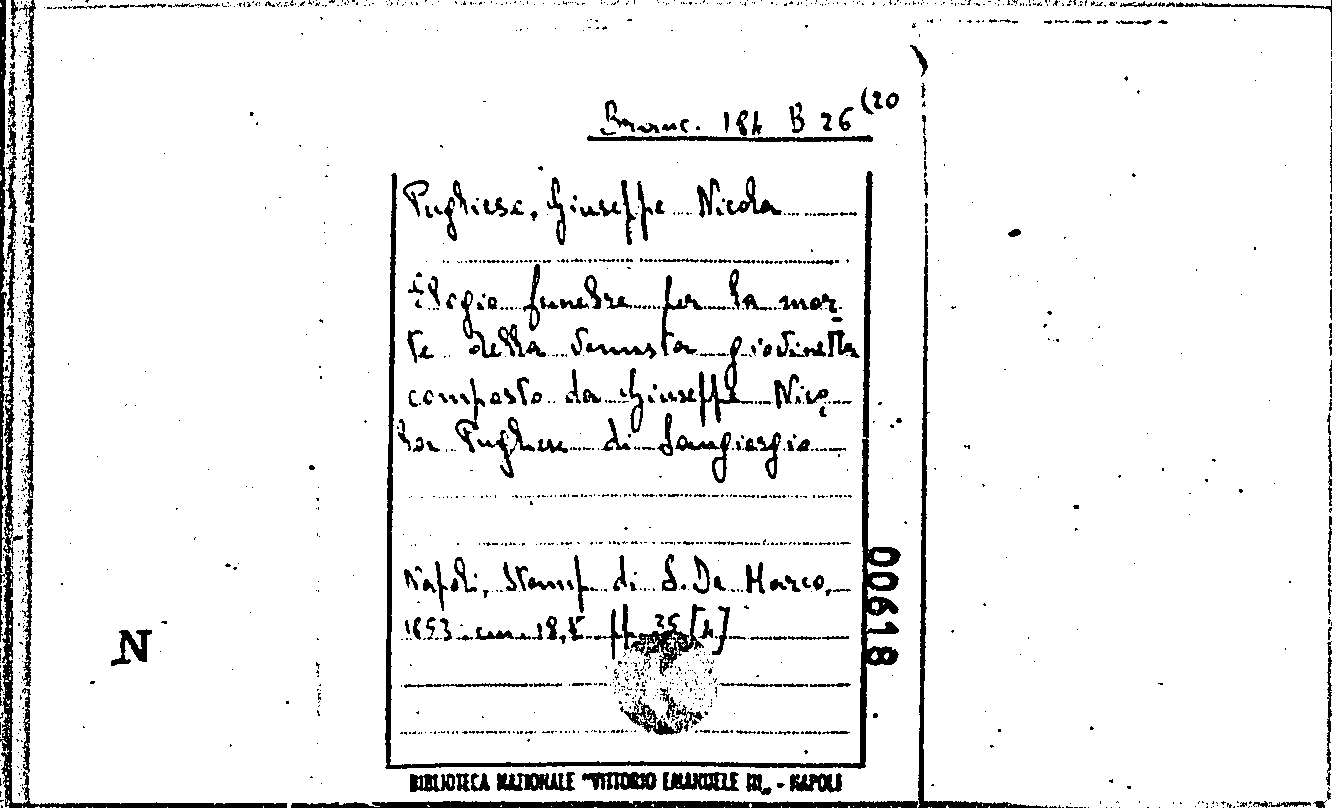 Branc. 184 B 26 (20
Pugliese, Giuseppe Nicola
Elogio funebre per la mor-
te della venusta giovinetta
composto da Giuseppe Nico
la Pugliese di Sangiorgio
Napoli, Stamp. di S. De Marco,
1853 cm. 18,5 pp. 35 [4]
00618
N
BIBLIOTECA NAZIONALE "VITTORIO EMANUELE III" - NAPOLI